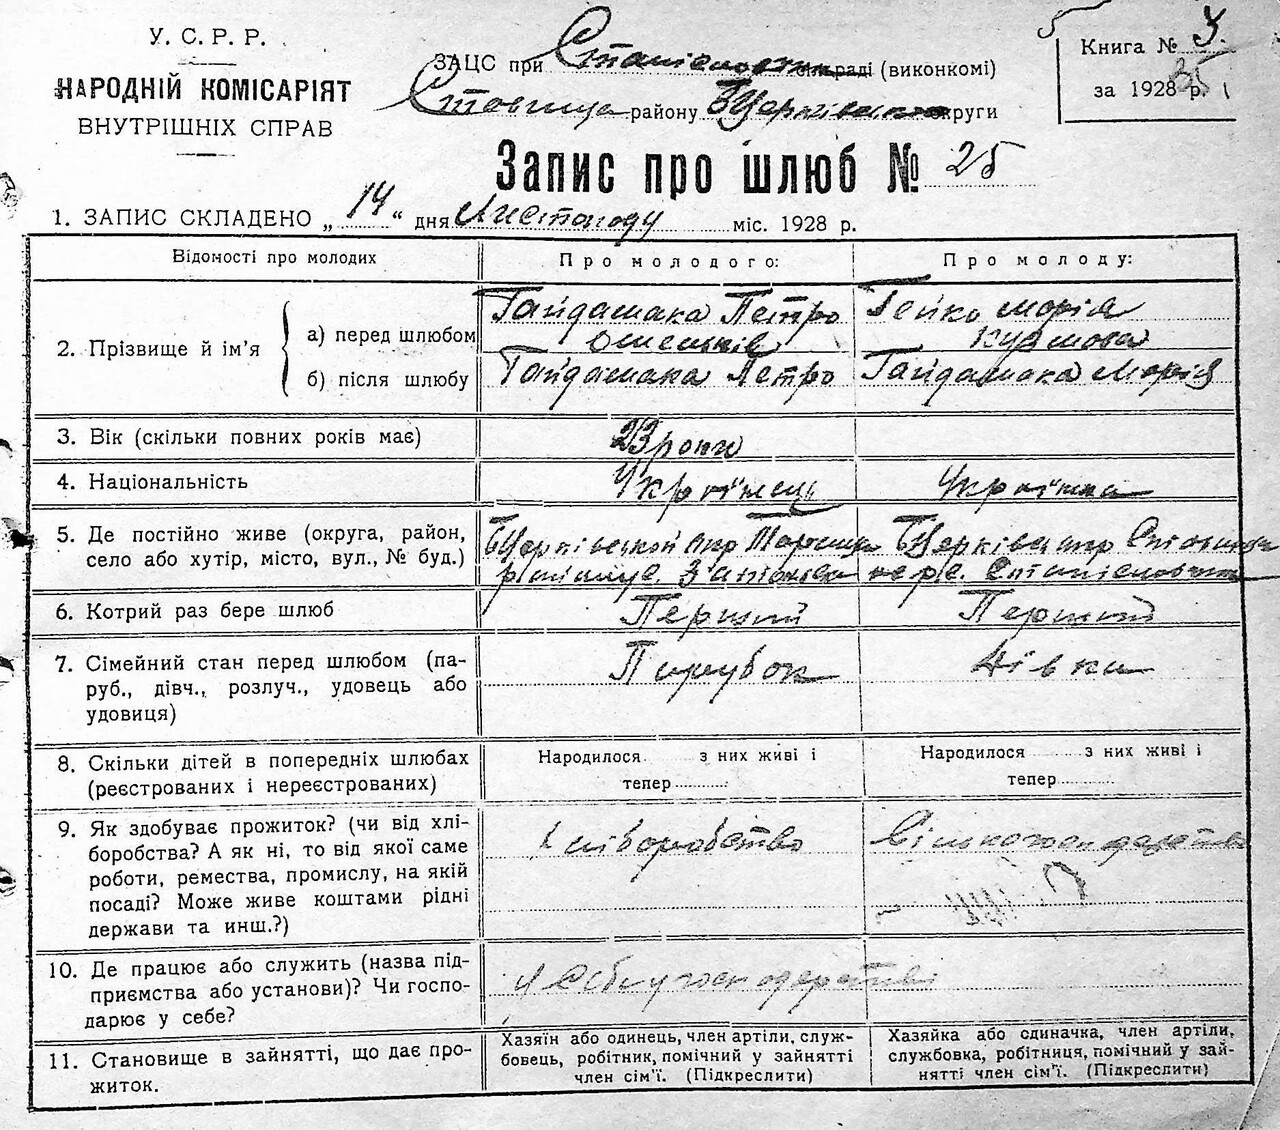 У. С. Р. Р.
НАРОДНІЙ КОМІСАРІЯТ
ВНУТРІШНІХ СПРАВ
ЗАЦС при раді (виконкомі)
району округи
Книга №
за 1928 р.
Запис про шлюб № 25
1. ЗАПИС СКЛАДЕНО „ 14 “ дня Листопаду міс. 1928 р.
Відомості про молодих
Про молодого:
Про молоду:
2. Прізвище й ім'я
а) перед шлюбом
Гайдамака Петро
Гейко Марія
б) після шлюбу
Гайдамака Петро
Гайдамака Марія
3. Вік (скільки повних років має)
23 роки
4. Національність
Українець
Українка
5. Де постійно живе (округа, район,
село або хутір, місто, вул., № буд.)
6. Котрий раз бере шлюб
Перший
Перший
7. Сімейний стан перед шлюбом (па-
руб., дівч., розлуч., удовець або
удовиця)
Парубок
Дівка
8. Скільки дітей в попередніх шлюбах
(реєстрованих і нереєстрованих)
Народилося з них живі і
тепер
Народилося з них живі і
тепер
9. Як здобуває прожиток? (чи від хлі-
боробства? А як ні, то від якої саме
роботи, ремества, промислу, на якій
посаді? Може живе коштами рідні
держави та инш.?)
Хліборобство
10. Де працює або служить (назва під-
приємства або установи)? Чи госпо-
дарює у себе?
господарстві
11. Становище в зайнятті, що дає про-
житок.
Хазяїн або одинець, член артіли, служ-
бовець, робітник, помічний у зайнятті
член сім'ї. (Підкреслити)
Хазяйка або єдиначка, член артіли,
службовка, робітниця, помічний у зай-
нятті член сім'ї. (Підкреслити)